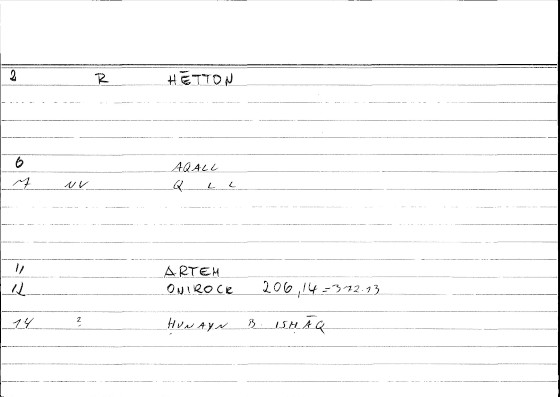 2 R HĒTTON
6 AQALL
7 NV Q L L
11 ARTEH
12 ONIROCR 206,14=372.13
14 ? ḤUNAYN B. ISḤĀQ